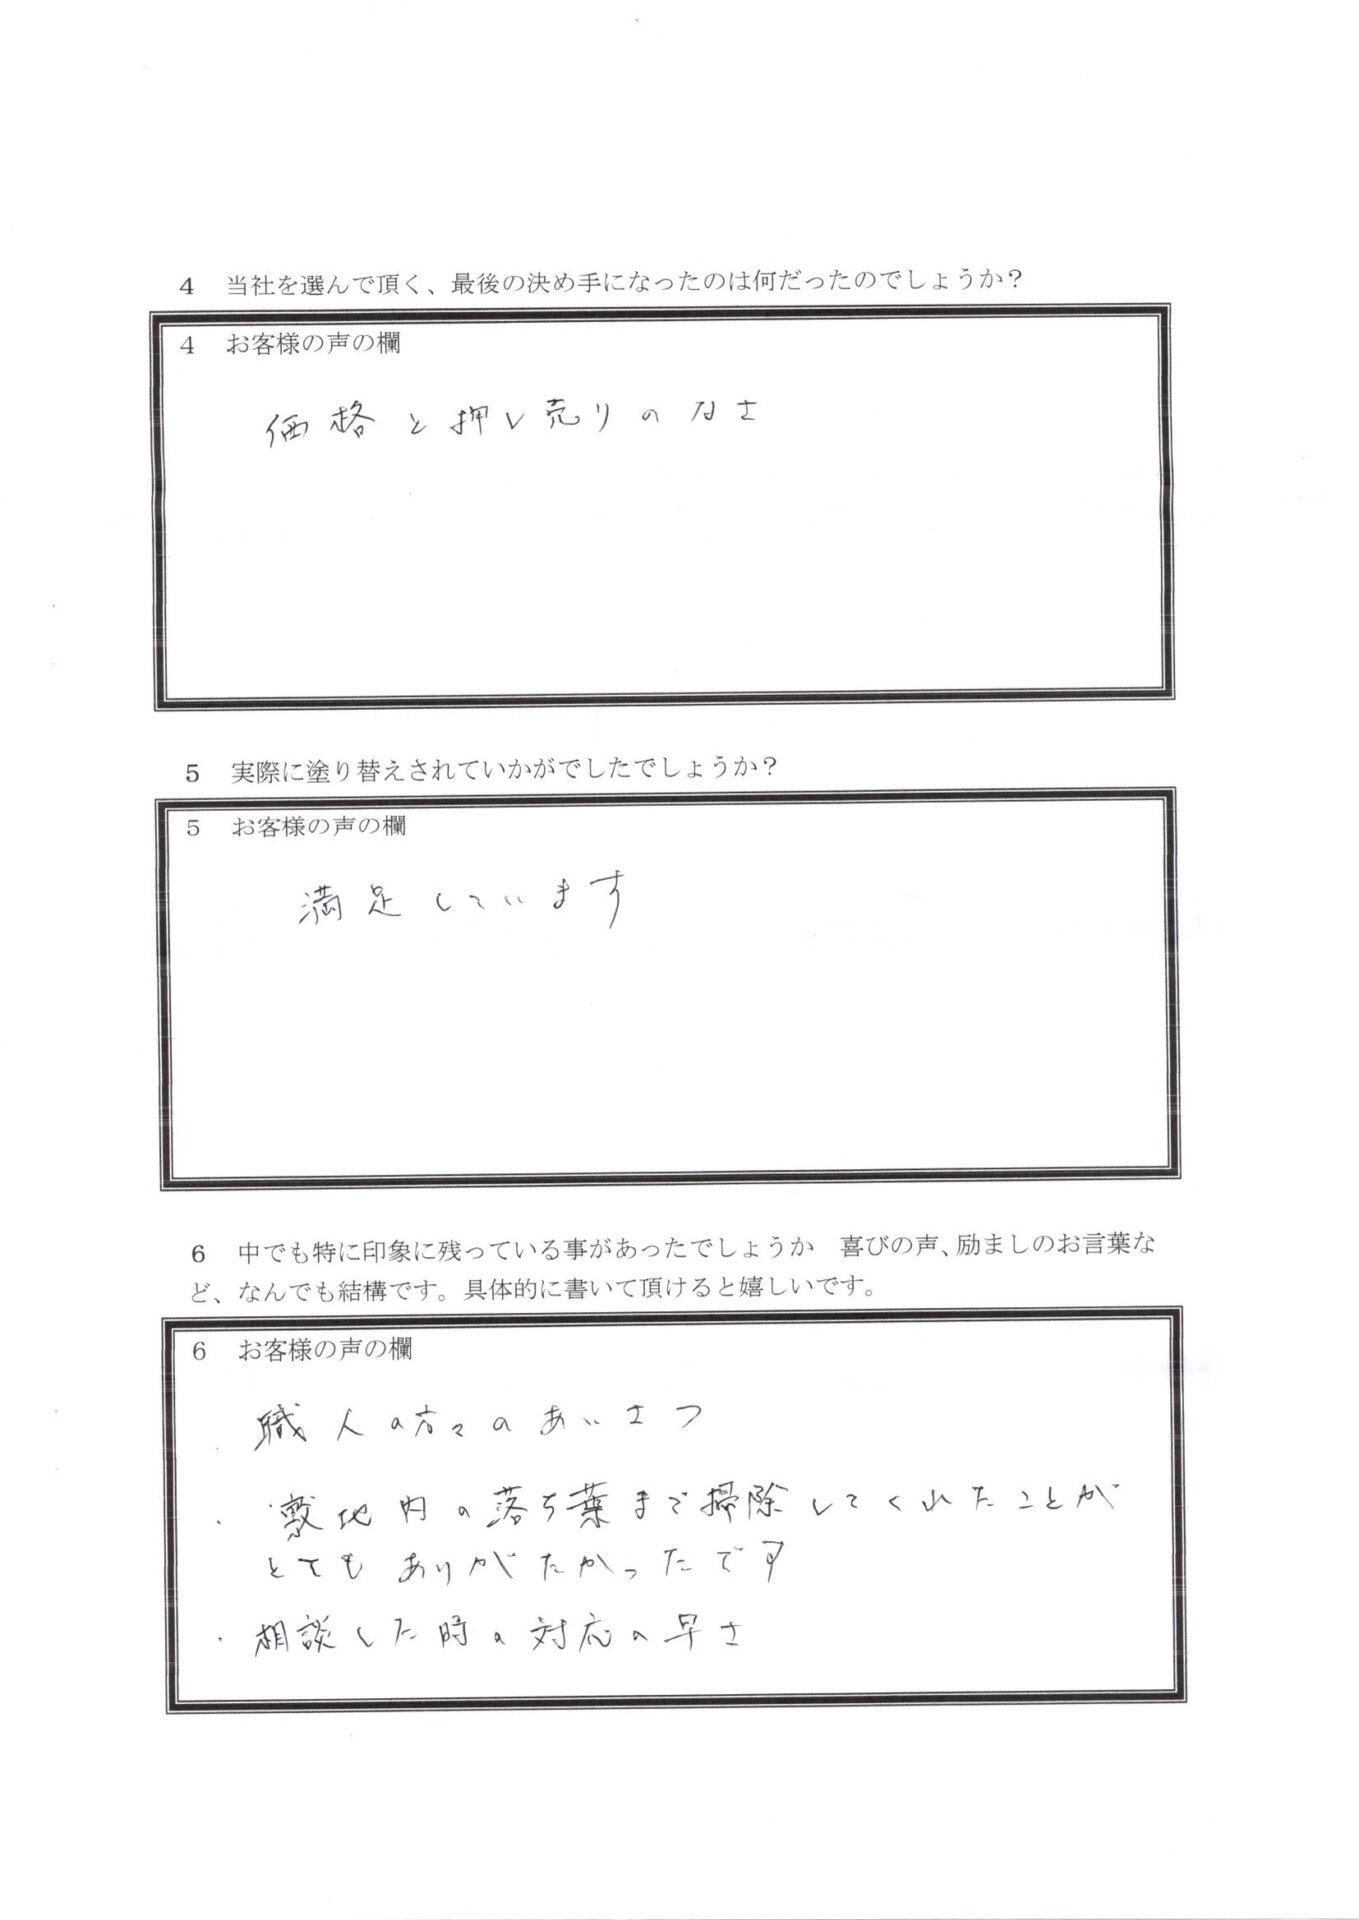 4 当社を選んで頂く、最後の決め手になったのは何だったのでしょうか？
4 お客様の声の欄
価格と押し売りのなさ
5 実際に塗り替えされていかがでしたでしょうか？
5 お客様の声の欄
満足しています
6 中でも特に印象に残っている事があったでしょうか 喜びの声、励ましのお言葉な
ど、なんでも結構です。具体的に書いて頂けると嬉しいです。
6 お客様の声の欄
・職人の方々のあいさつ
・敷地内の落ち葉まで掃除してくれたことが
とてもありがたかったです
・相談した時の対応の早さ